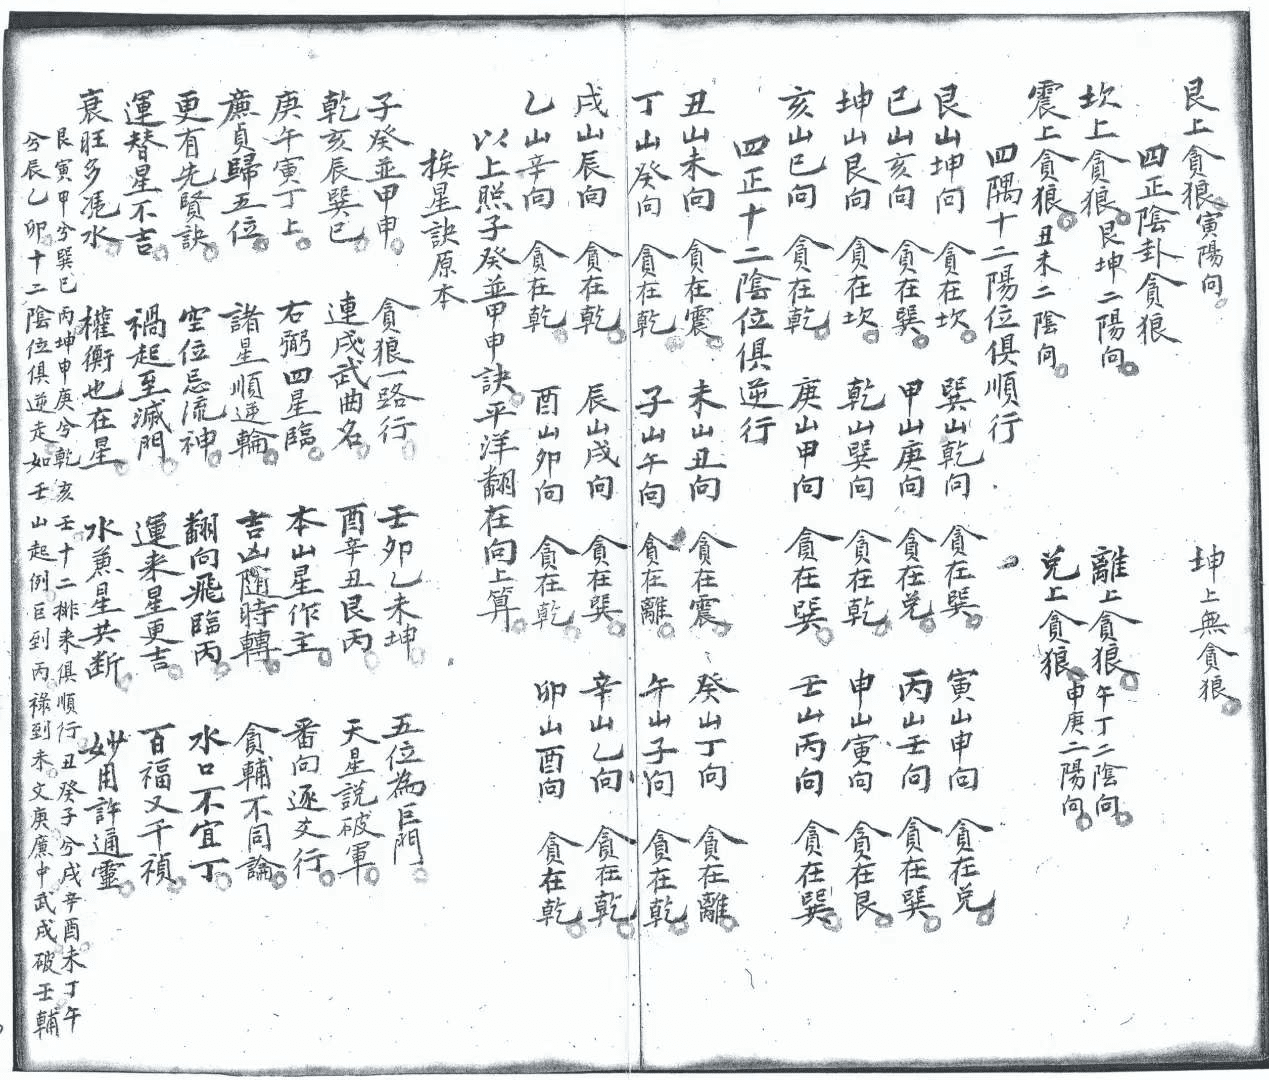 艮上貪狼寅陽向　坤上無貪狼
四正陰卦貪狼
坎上貪狼艮坤二陽向　離上貪狼午丁二陰向
震上貪狼丑未二陰向　兌上貪狼申庚二陽向
四隅十二陽位俱順行
艮山坤向　貪在坎　巽山乾向　貪在巽　寅山申向　貪在兌
巳山亥向　貪在巽　甲山庚向　貪在兌　丙山壬向　貪在巽
坤山艮向　貪在坎　乾山巽向　貪在乾　申山寅向　貪在艮
亥山巳向　貪在乾　庚山甲向　貪在巽　壬山丙向　貪在巽
四正十二陰位俱逆行
丑山未向　貪在震　未山丑向　貪在震　癸山丁向　貪在離
丁山癸向　貪在乾　子山午向　貪在離　午山子向　貪在乾
戌山辰向　貪在乾　辰山戌向　貪在巽　辛山乙向　貪在乾
乙山辛向　貪在乾　酉山卯向　貪在乾　卯山酉向　貪在乾
以上照子癸並甲申訣平洋翻在向上算
挨星訣原本
子癸並甲申　貪狼一路行　壬卯乙未坤　五位為巨門
乾亥辰巽巳　連戌武曲名　酉辛丑艮丙　天星說破軍
庚午寅丁上　右弼四星臨　本山星作主　番向逐爻行
廉貞歸五位　諸星順逆輪　吉凶隨時轉　貪輔不同論
更有先賢訣　空位忌流神　翻向飛臨丙　水口不宜丁
運替星不吉　禍起至滅門　運来星更吉　百福又千禎
衰旺多凴水　權衡也在星　水蕪星共断　妙用許通靈
艮寅甲兮巽巳丙坤申庚兮乾亥壬十二排来俱順行丑癸子兮戌辛酉未丁午
兮辰乙卯十二陰位俱逆走如壬山起例巨到丙祿到未文庚廉中武戌破壬輔